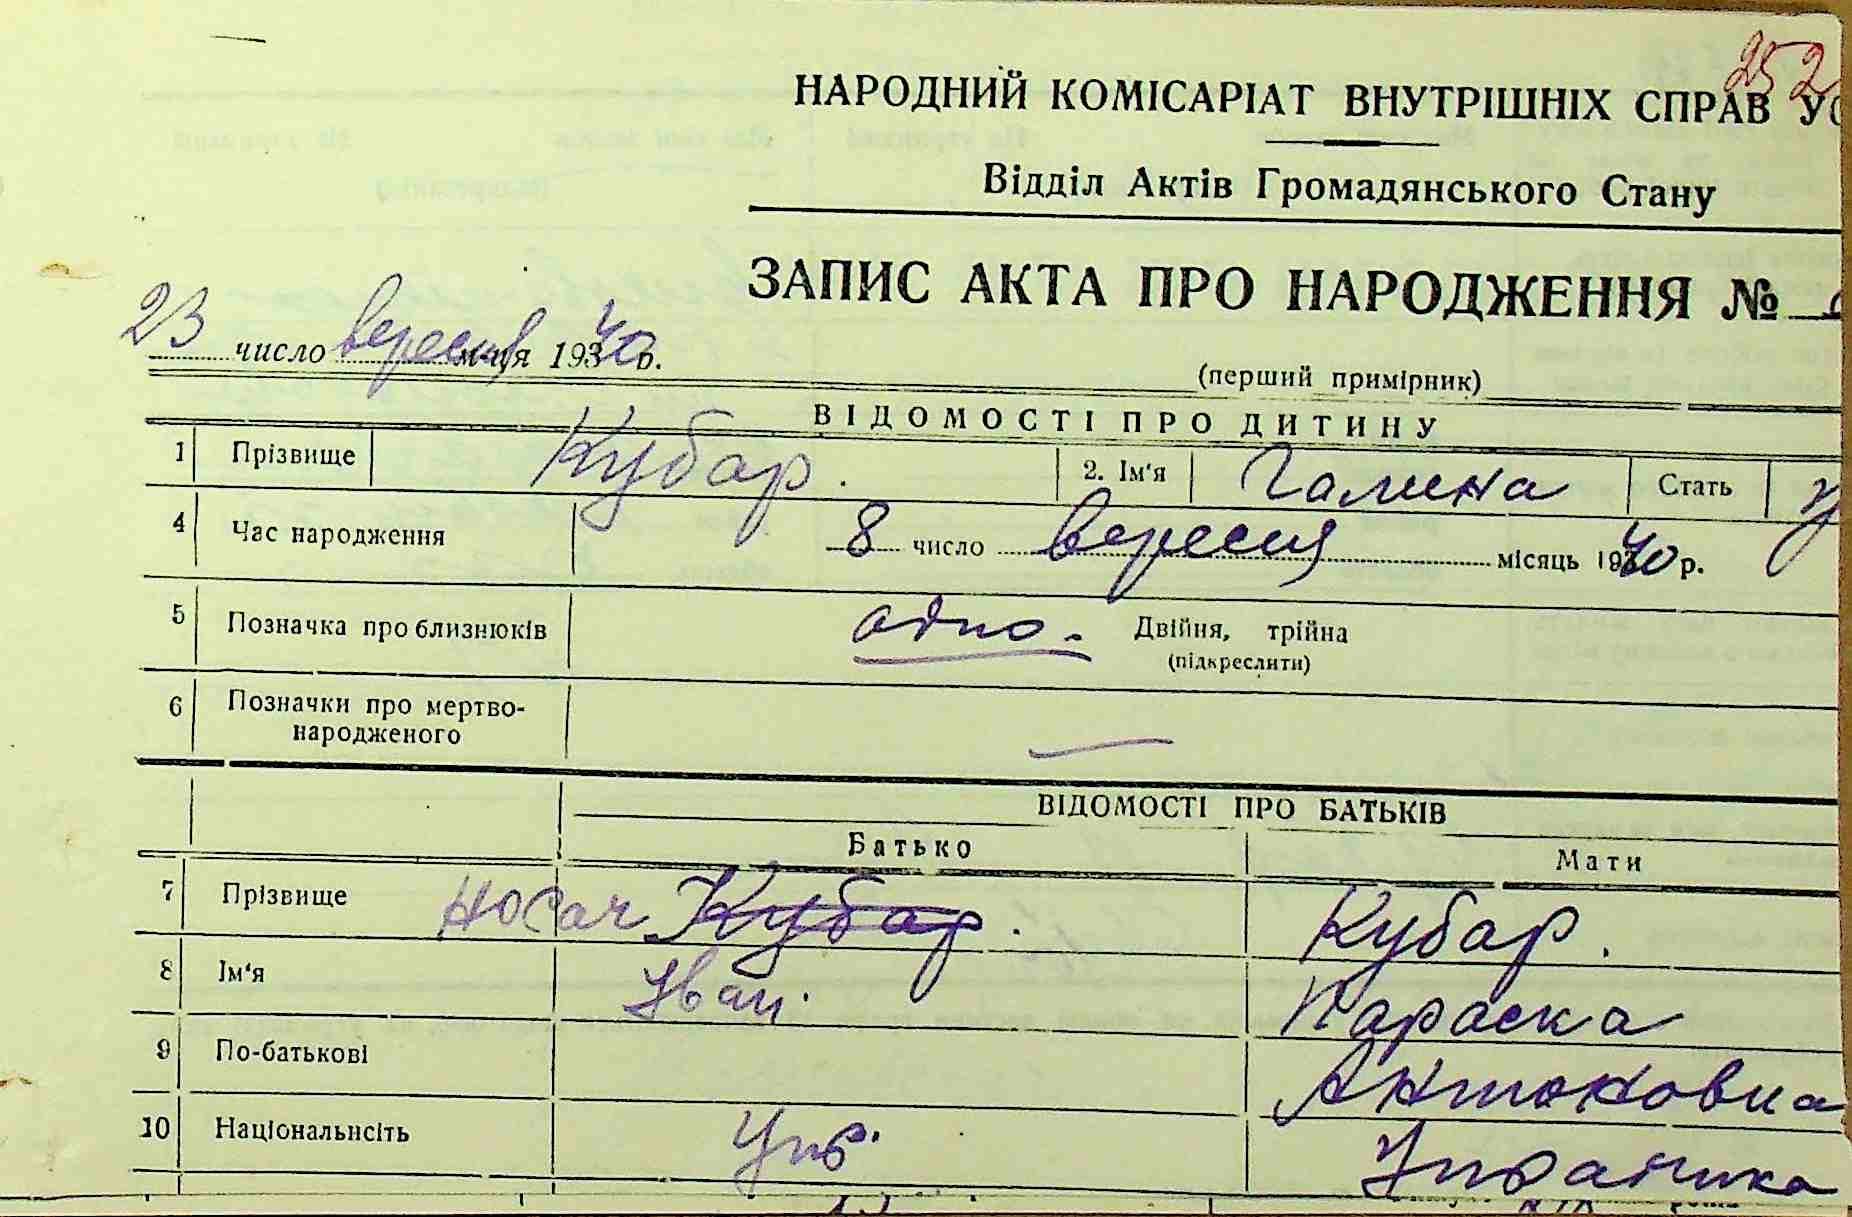 252
НАРОДНИЙ КОМІСАРІАТ ВНУТРІШНІХ СПРАВ УС
Відділ Актів Громадянського Стану
ЗАПИС АКТА ПРО НАРОДЖЕННЯ №
23 число вересня м-ця 1940 р.
(перший примірник)
ВІДОМОСТІ ПРО ДИТИНУ
1 Прізвище Кубар. 2. Ім'я Галина Стать
4 Час народження 8 число вересня місяць 1940 р.
5 Позначка про близнюків одно. Двійня, трійна
(підкреслити)
6 Позначки про мертво-
народженого —
ВІДОМОСТІ ПРО БАТЬКІВ
Батько Мати
7 Прізвище Носач Кубар. Кубар.
8 Ім'я Іван. Параска
9 По-батькові Антоновна
10 Національнсіть Укр. Українка